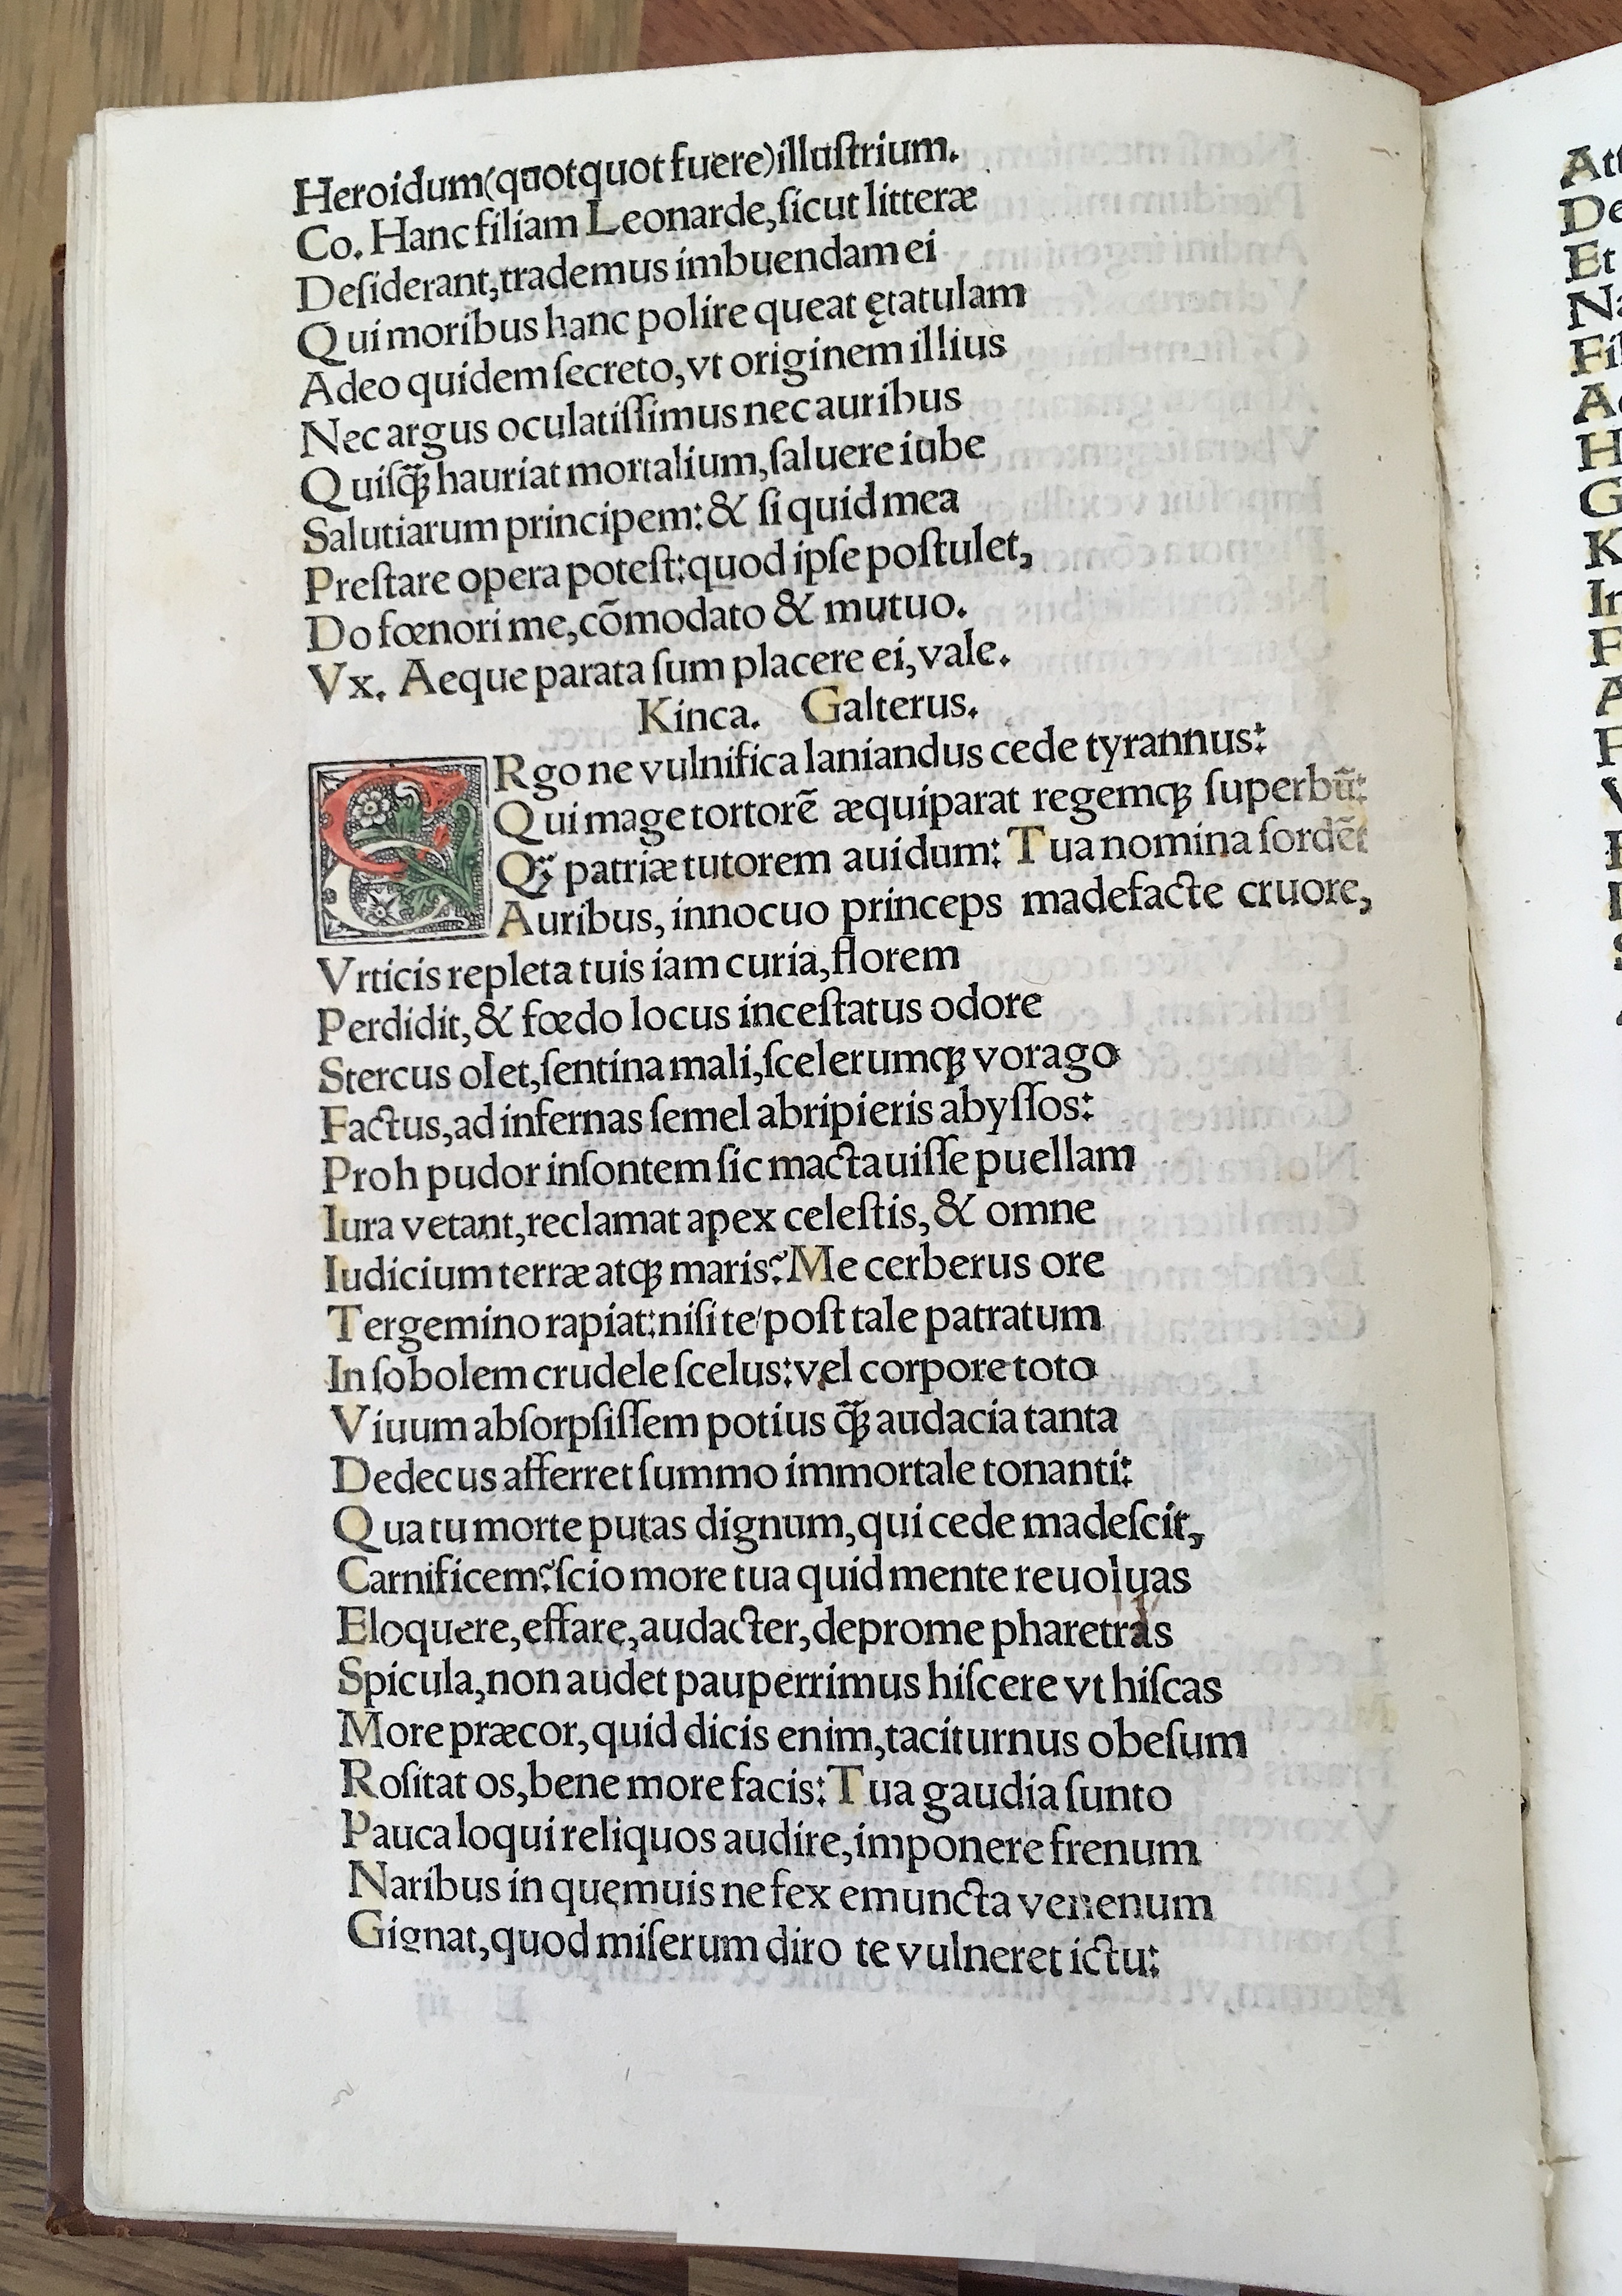 Heroidum(quotquot fuere)illuſtrium.
Co. Hanc filiam Leonarde,ſicut litteræ
Deſiderant,trademus imbuendam ei
Qui moribus hanc polire queat ętatulam
Adeo quidem ſecreto,vt originem illius
Nec argus oculatiſſimus nec auribus
Quiſq̃ꝫ hauriat mortalium,ſaluere iube
Salutiarum principem:& ſi quid mea
Preſtare opera poteſt:quod ipſe poſtulet,
Do fœnori me,cõmodato & mutuo.
Vx. Aeque parata ſum placere ei,vale.
Kinca. Galterus.
ERgo ne vulnifica laniandus cede tyrannus:
Qui mage tortorẽ æquiparat regemqꝫ ſuperbũ:
Qꝫ patriæ tutorem auidum: Tua nomina ſordẽt
Auribus, innocuo princeps madefacte cruore,
Vrticis repleta tuis iam curia,florem
Perdidit,& fœdo locus inceſtatus odore
Stercus olet,ſentina mali,ſcelerumqꝫ vorago
Factus,ad infernas ſemel abripieris abyſſos:
Proh pudor inſontem ſic mactauiſſe puellam
Iura vetant,reclamat apex celeſtis,& omne
Iudicium terræ atqꝫ maris? Me cerberus ore
Tergemino rapiat:niſi te/poſt tale patratum
In ſobolem crudele ſcelus:vel corpore toto
Viuum abſorpſiſſem potius q̃ꝫ audacia tanta
Dedecus afferret ſummo immortale tonanti:
Qua tu morte putas dignum,qui cede madeſcit,
Carnificem?ſcio more tua quid mente reuoluas
Eloquere,effare,audacter,deprome pharetras
Spicula,non audet pauperrimus hiſcere vt hiſcas
More præcor,quid dicis enim,taciturnus obeſum
Roſitat os,bene more facis: Tua gaudia ſunto
Pauca loqui reliquos audire,imponere frenum
Naribus in quęmuis ne fex emuncta venenum
Gignat,quod miſerum diro te vulneret ictu:
Att
De
Et
Na
Fil
H
G
K
In
F
A
F